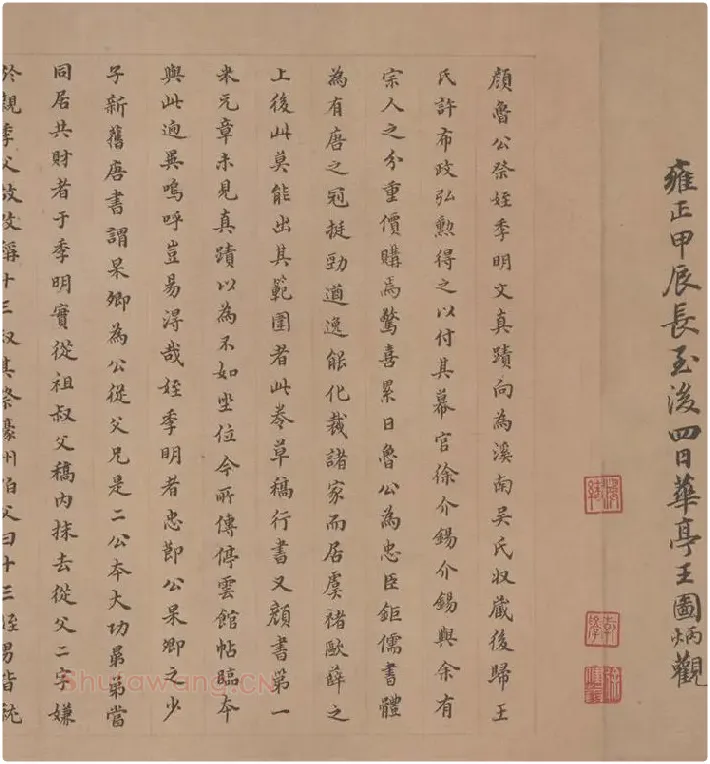 雍正甲辰長至後四日華亭王圖炳觀
顏魯公祭姪季明文真蹟向為溪南吳氏收藏後歸王
氏許布政弘勳得之以付其幕官徐介錫介錫與余有
宗人之分重價購焉驚喜累日魯公為忠臣鉅儒書體
為有唐之冠挺勁遒逸能化裁諸家而居虞褚歐薛之
上後此莫能出其範圍者此卷草稿行書又顏書第一
米元章未見真蹟以為不如坐位今所傳停雲館帖臨本
與此迥異嗚呼豈易得哉姪季明者忠節公杲卿之少
子新舊唐書謂杲卿為公從父兄是二公本大功昆弟當
同居共財者于季明實從祖叔父稿內抹去從父二字嫌
於親季父故改稱十三叔其祭濠州伯父曰十三姪男皆統
Shufawang.CN